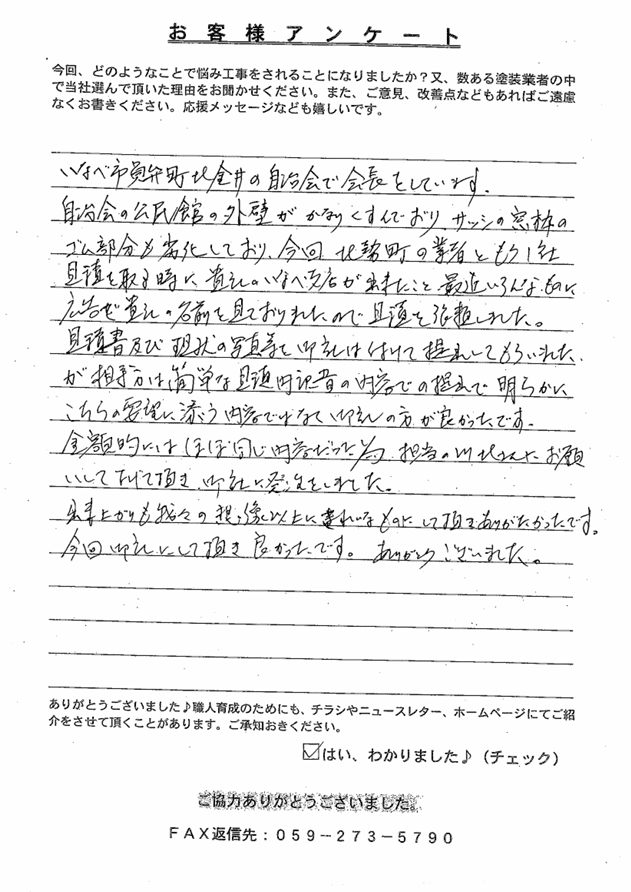 お客様アンケート
今回、どのようなことで悩み工事をされることになりましたか？又、数ある塗装業者の中
で当社選んで頂いた理由をお聞かせください。また、ご意見、改善点などもあればご遠慮
なくお書きください。応援メッセージなども嬉しいです。
いなべ市員弁町北金井の自治会で会長をしています。
自治会の公民館の外壁がかなりくすんでおり、サッシの窓枠の
ゴム部分も劣化しており、今回 北勢町の業者ともう1社
見積を取る時に、貴社のいなべ支店が出来たこと 最近いろんなものに
広告で貴社の名前を見ておりましたので見積を依頼しました。
見積書及び現状の写真等を御社は付けて提出してもらいました
が相手方は簡単な見積内訳書の内容での提出で明らかに
こちらの要望に添う内容ではなく御社の方が良かったです。
金額的にはほぼ同じ内容だった為、担当の川北さんにお願
いして下げて頂き御社に発注をしました。
出来上がりも我々の想像以上に達れいなものにして頂きありがたかったです。
今回御社にして頂き良かったです。ありがとうございました。
ありがとうございました♪職人育成のためにも、チラシやニュースレター、ホームページにてご紹
介をさせて頂くことがあります。ご承知おきください。
☑はい、わかりました♪（チェック）
ご協力ありがとうございました。
ＦＡＸ返信先：０５９－２７３－５７９０